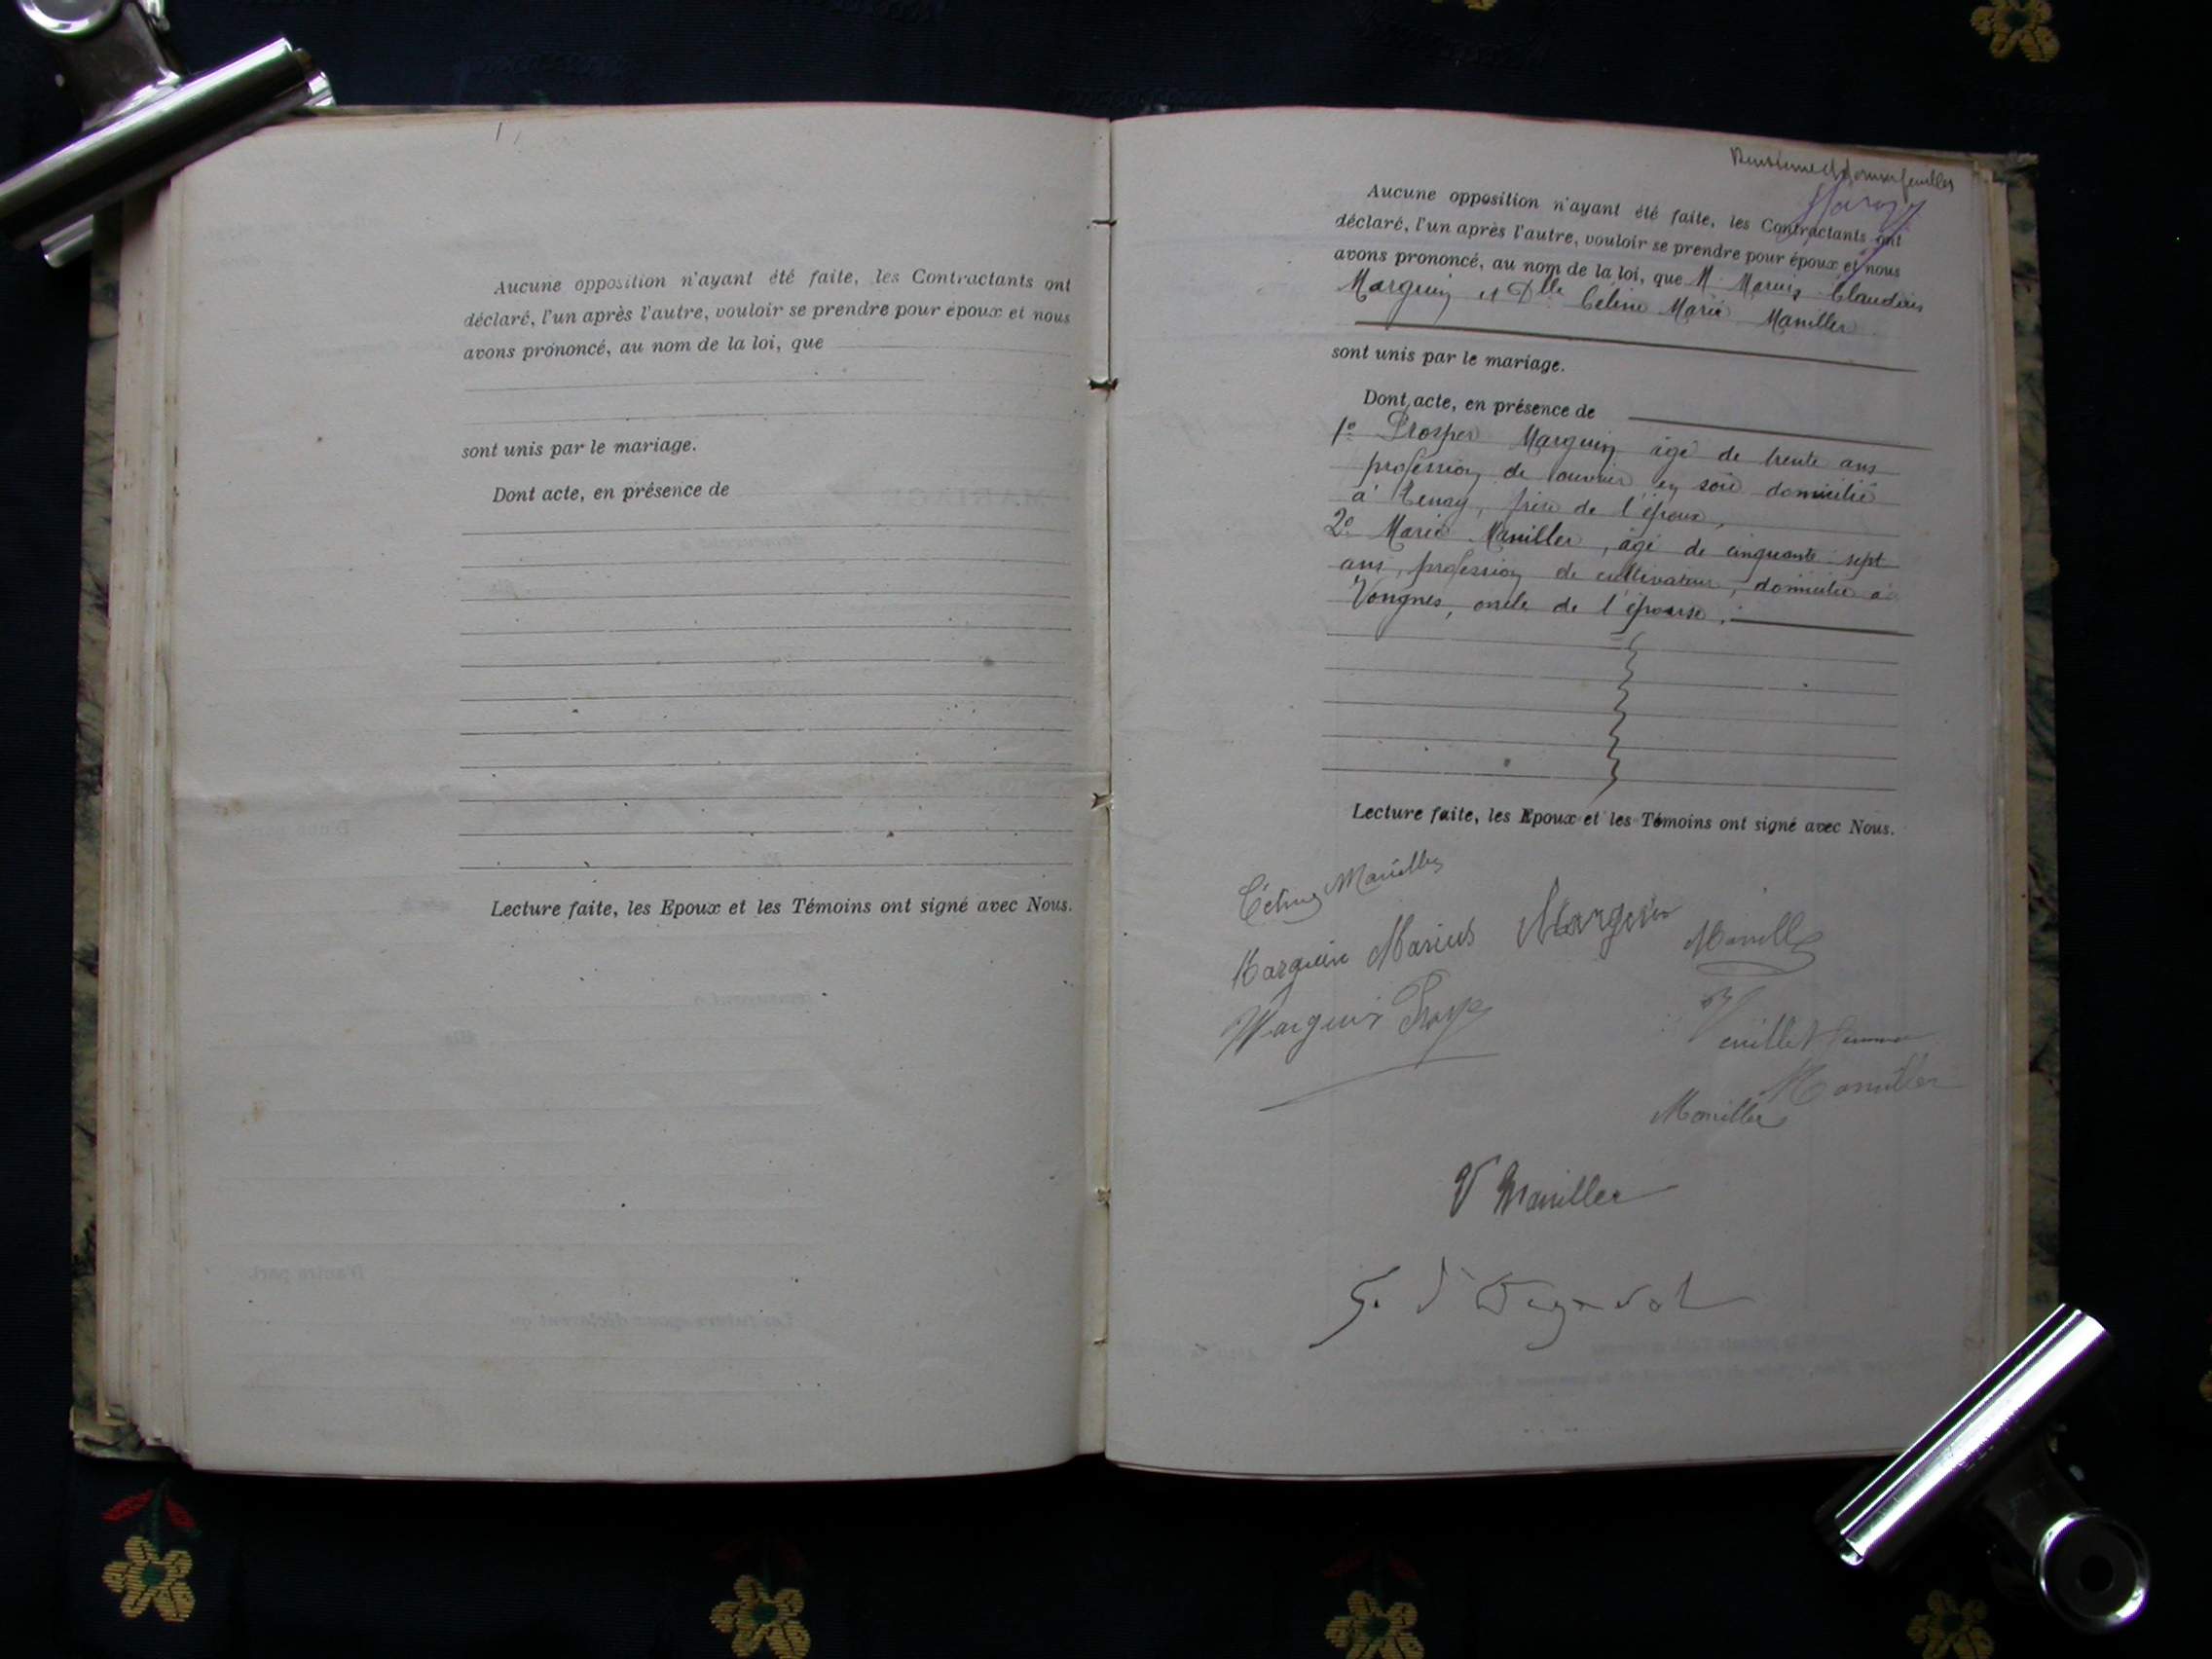 Aucune opposition n'ayant été faite, les Contractants ont
déclaré, l'un après l'autre, vouloir se prendre pour époux et nous
avons prononcé, au nom de la loi, que
sont unis par le mariage.
Dont acte, en présence de
Lecture faite, les Epoux et les Témoins ont signé avec Nous.
feuilles
Aucune opposition n'ayant été faite, les Contractants ont
déclaré, l'un après l'autre, vouloir se prendre pour époux et nous
avons prononcé, au nom de la loi, que M. Marius Claudius
Marguin et Dlle Céline Marie Maniller
sont unis par le mariage.
Dont acte, en présence de
1° Prosper Marguin âgé de trente ans
profession de ouvrier en soie domicilié
à Tenay, frère de l'époux,
2° Marie Maniller, âgé de cinquante sept
ans, profession de cultivateur, domicilié à
Vongnes, oncle de l'épouse.
Lecture faite, les Epoux et les Témoins ont signé avec Nous.
Céline Maniller
Marguin Marius Marguin Maniller
Marguin Prosp
Maniller
Maniller
V Maniller